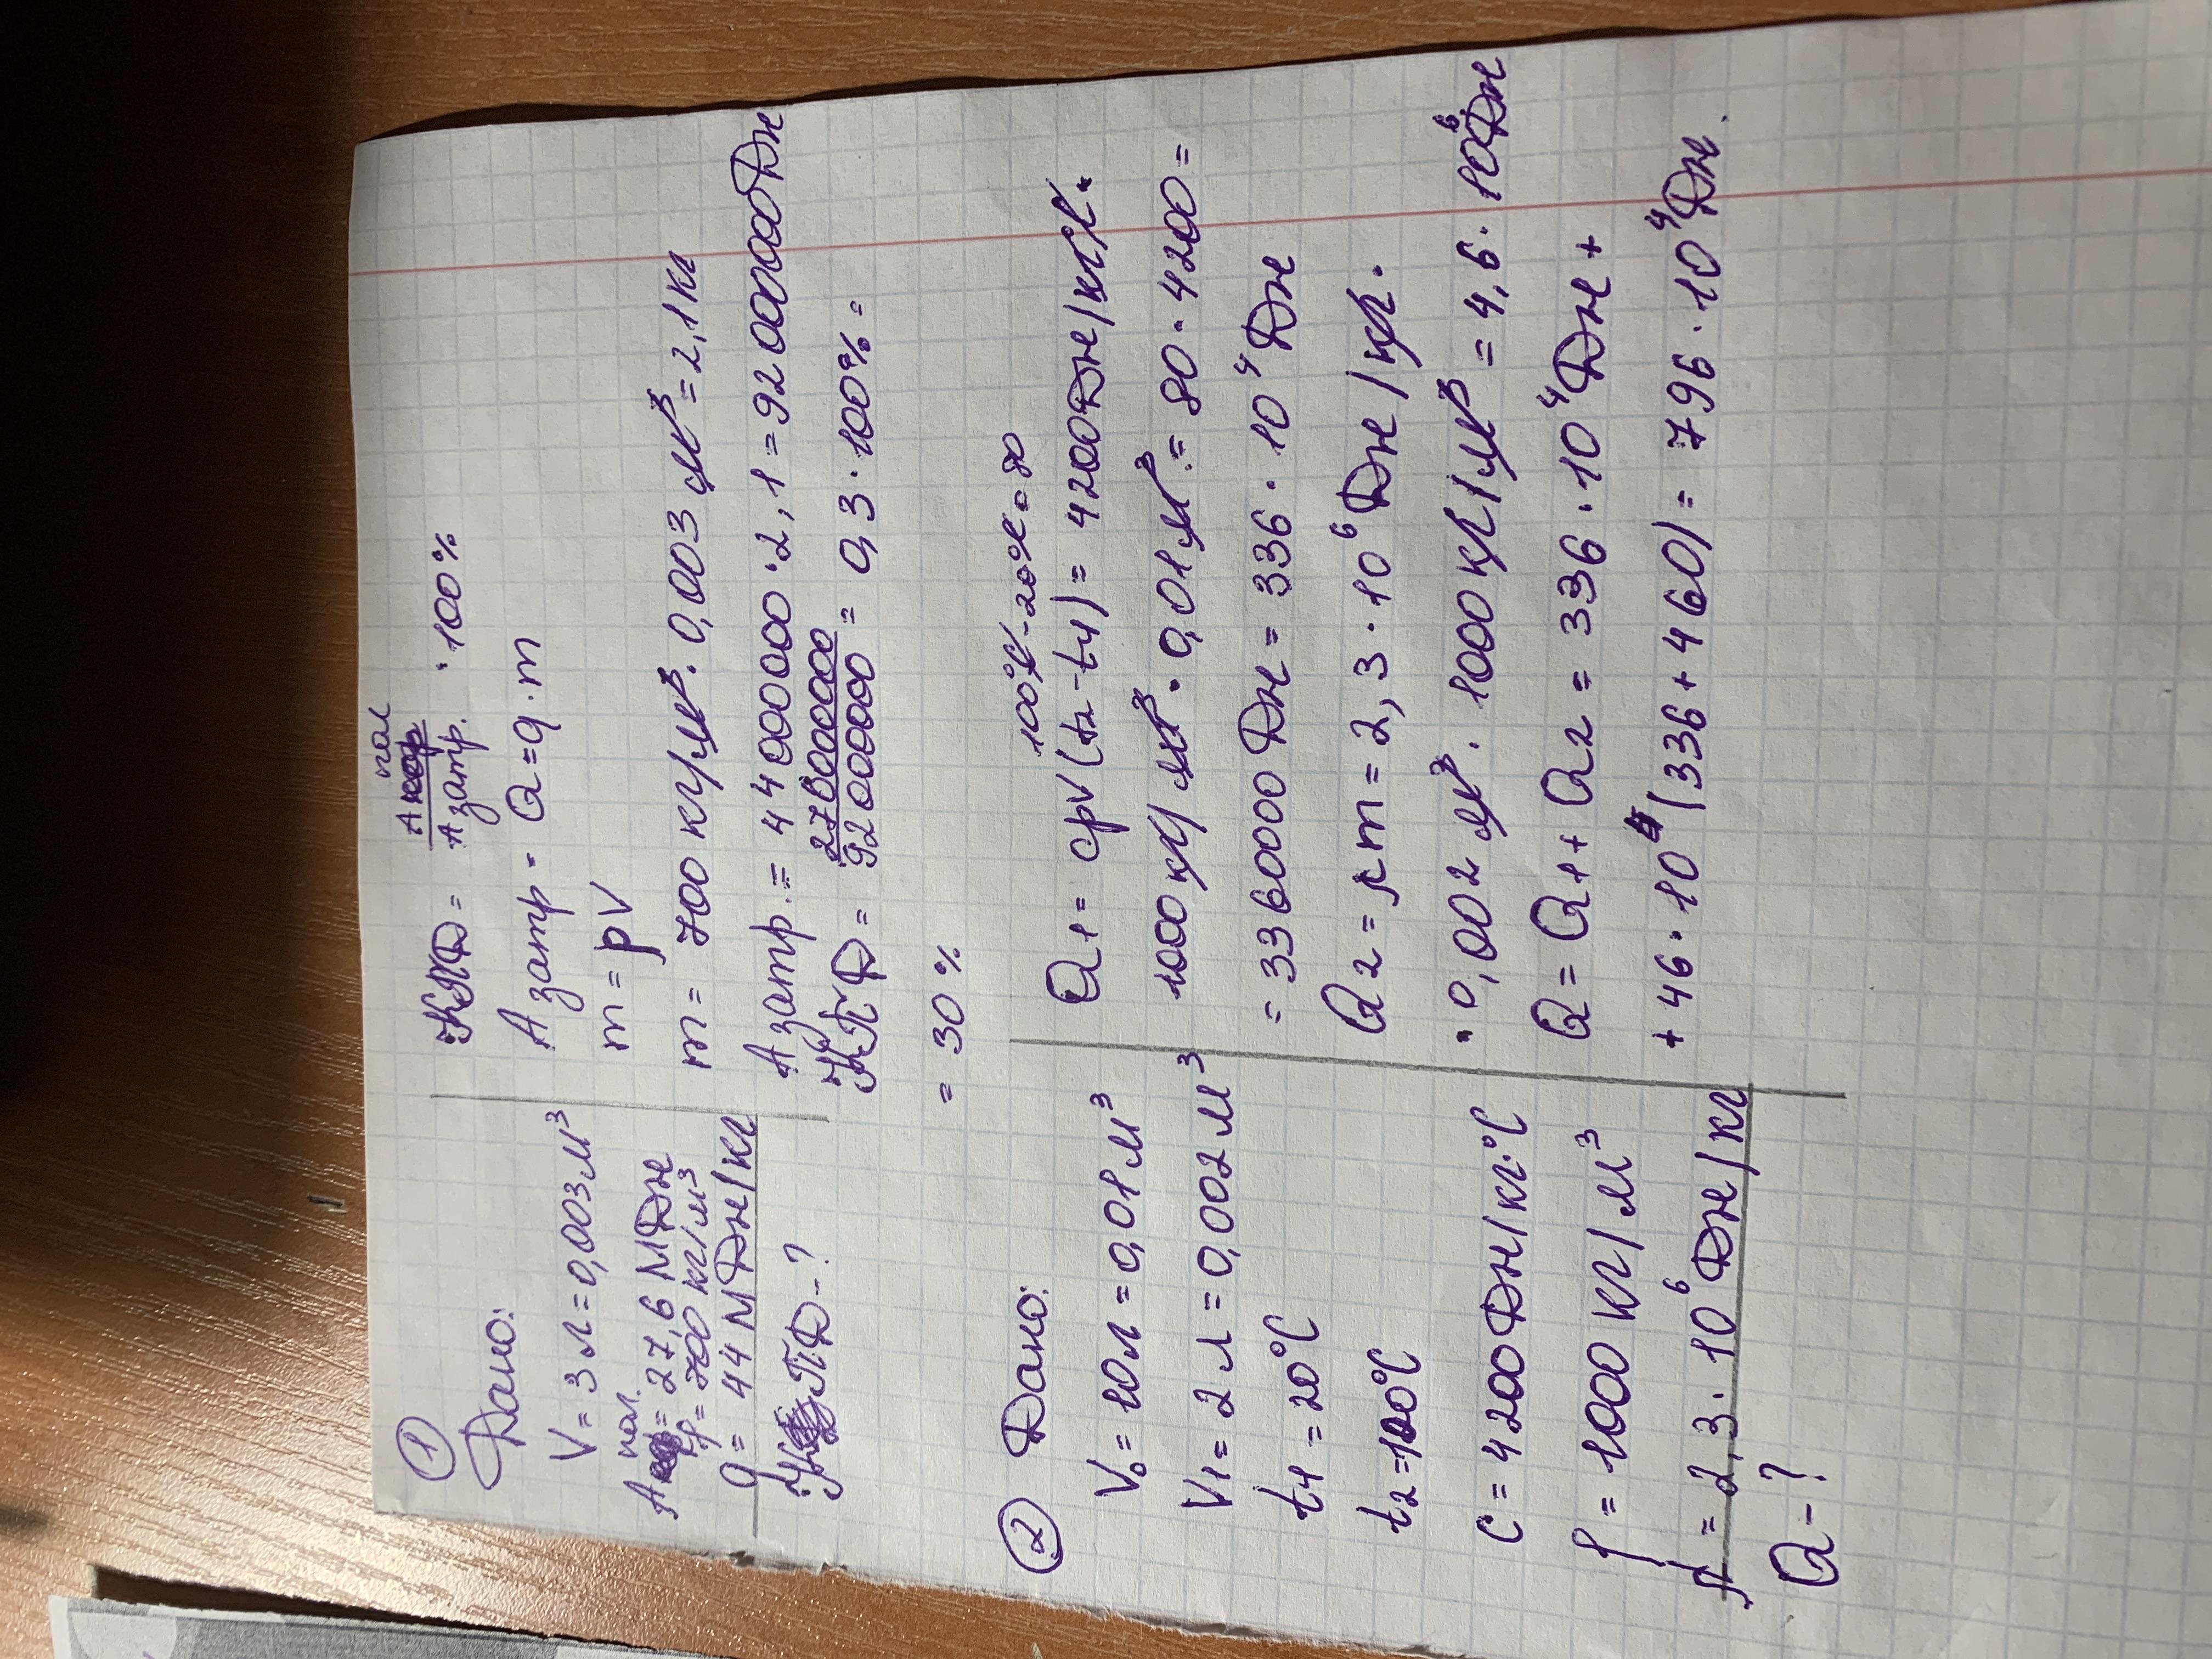 ①
Дано:
V = 3 л = 0,003 м³
Aпол. = 27,6 МДж
ρ = 700 кг/м³
q = 44 МДж/кг
КПД - ?
КПД = Aпол / Aзатр. · 100%
Aзатр = Q = q · m
m = ρV
m = 700 кг/м³ · 0,003 м³ = 2,1 кг
Aзатр. = 44 000000 · 2,1 = 92 000000 Дж
КПД = 27000000 / 92 000000 = 0,3 · 100% =
= 30 %
② Дано:
V₀ = 10л = 0,01 м³
V₁ = 2 л = 0,002 м³
t₁ = 20°C
t₂ = 100°C
c = 4200 Дж/кг·°C
ρ = 1000 кг/м³
r = 2,3 · 10⁶ Дж/кг
Q - ?
100°C - 20°C = 80
Q₁ = cρV(t₂ - t₁) = 4200 Дж/кг°C ·
1000 кг/м³ · 0,01 м³ = 80 · 4200 =
= 3360000 Дж = 336 · 10⁴ Дж
Q₂ = rm = 2,3 · 10⁶ Дж/кг ·
· 0,002 м³ · 1000 кг/м³ = 4,6 · 10⁶ Дж
Q = Q₁ + Q₂ = 336 · 10⁴ Дж +
+ 46 · 10⁴ (336 + 460) = 796 · 10⁴ Дж.